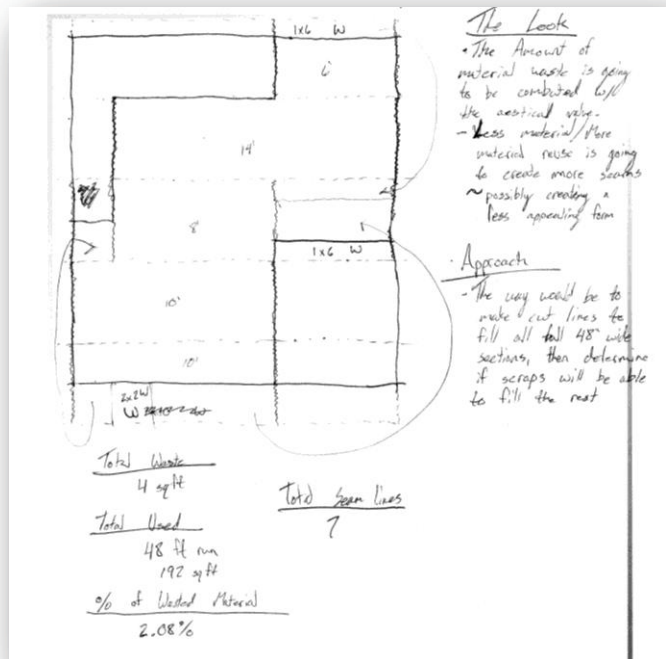 1x6 W
6'
14'
8'
1x6 W
10'
10'
2x2W
W
Total Waste
4 sqft
Total Used
48 ft run
192 sqft
% of Wasted Material
2.08%
Total Seam lines
7
The Look
• The Amount of
material waste is going
to be combuted w/
the aestical value.
- Less material/More
material reuse is going
to create more seams
~ possibly creating a
less appealing form
• Approach
- The way would be to
make cut lines to
fill all full 48" wide
sections, then determine
if scraps will be able
to fill the rest